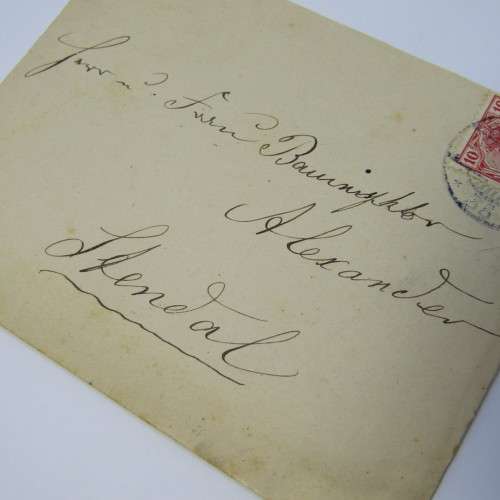 Herrn u. Frau Bauinspektor
Alexander
Stendal
10